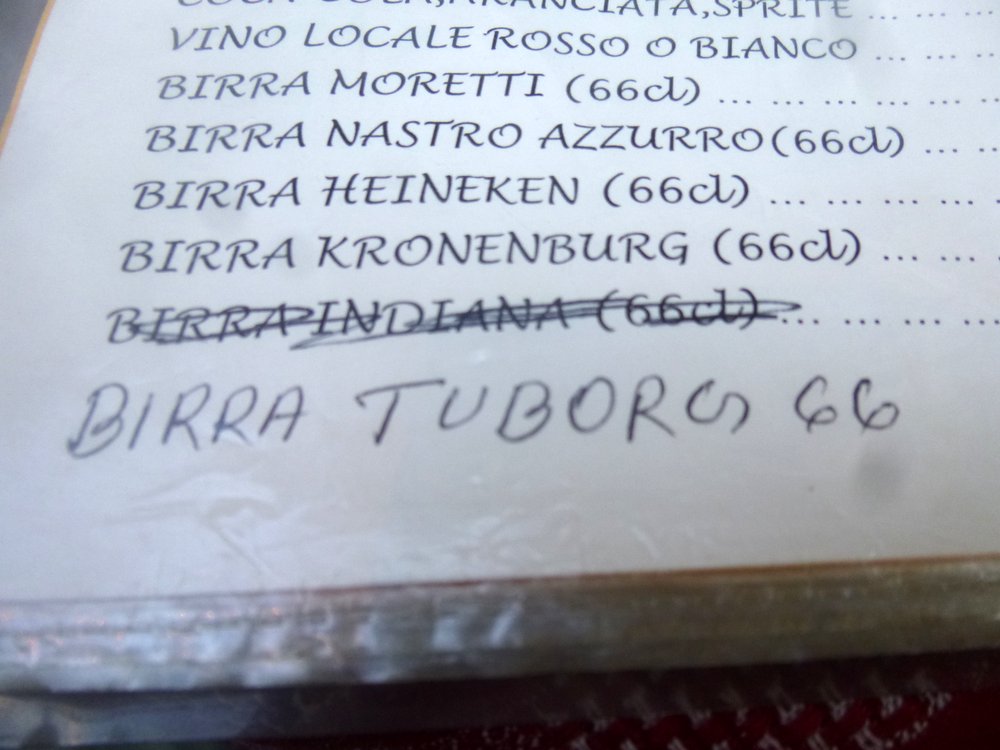 COCA COLA,ARANCIATA,SPRITE ... ...
VINO LOCALE ROSSO O BIANCO ... ...
BIRRA MORETTI (66cl) ... ... ... ... ... ...
BIRRA NASTRO AZZURRO(66cl) ... ...
BIRRA HEINEKEN (66cl) ... ... ... ... ...
BIRRA KRONENBURG (66cl) ... ... ...
BIRRA INDIANA (66cl) ... ... ... ... ...
BIRRA TUBORG 66